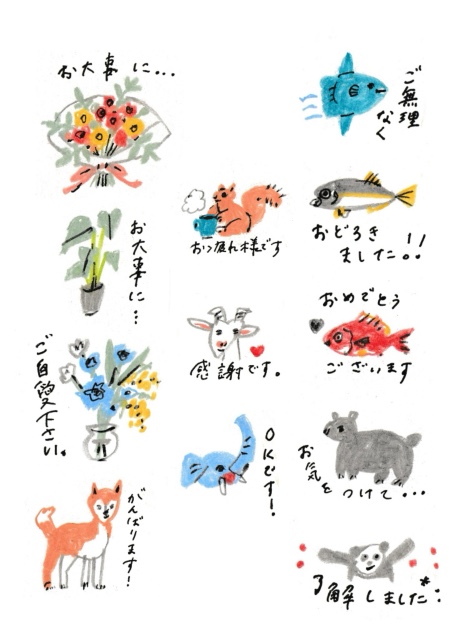 お大事に...
お大事に...
ご自愛下さい。
がんばります！
お疲れ様です
感謝です。
OKです！
ご無理
なく
おどろき
ました!!
おめでとう
ございます
お気を
つけて...
了解しました